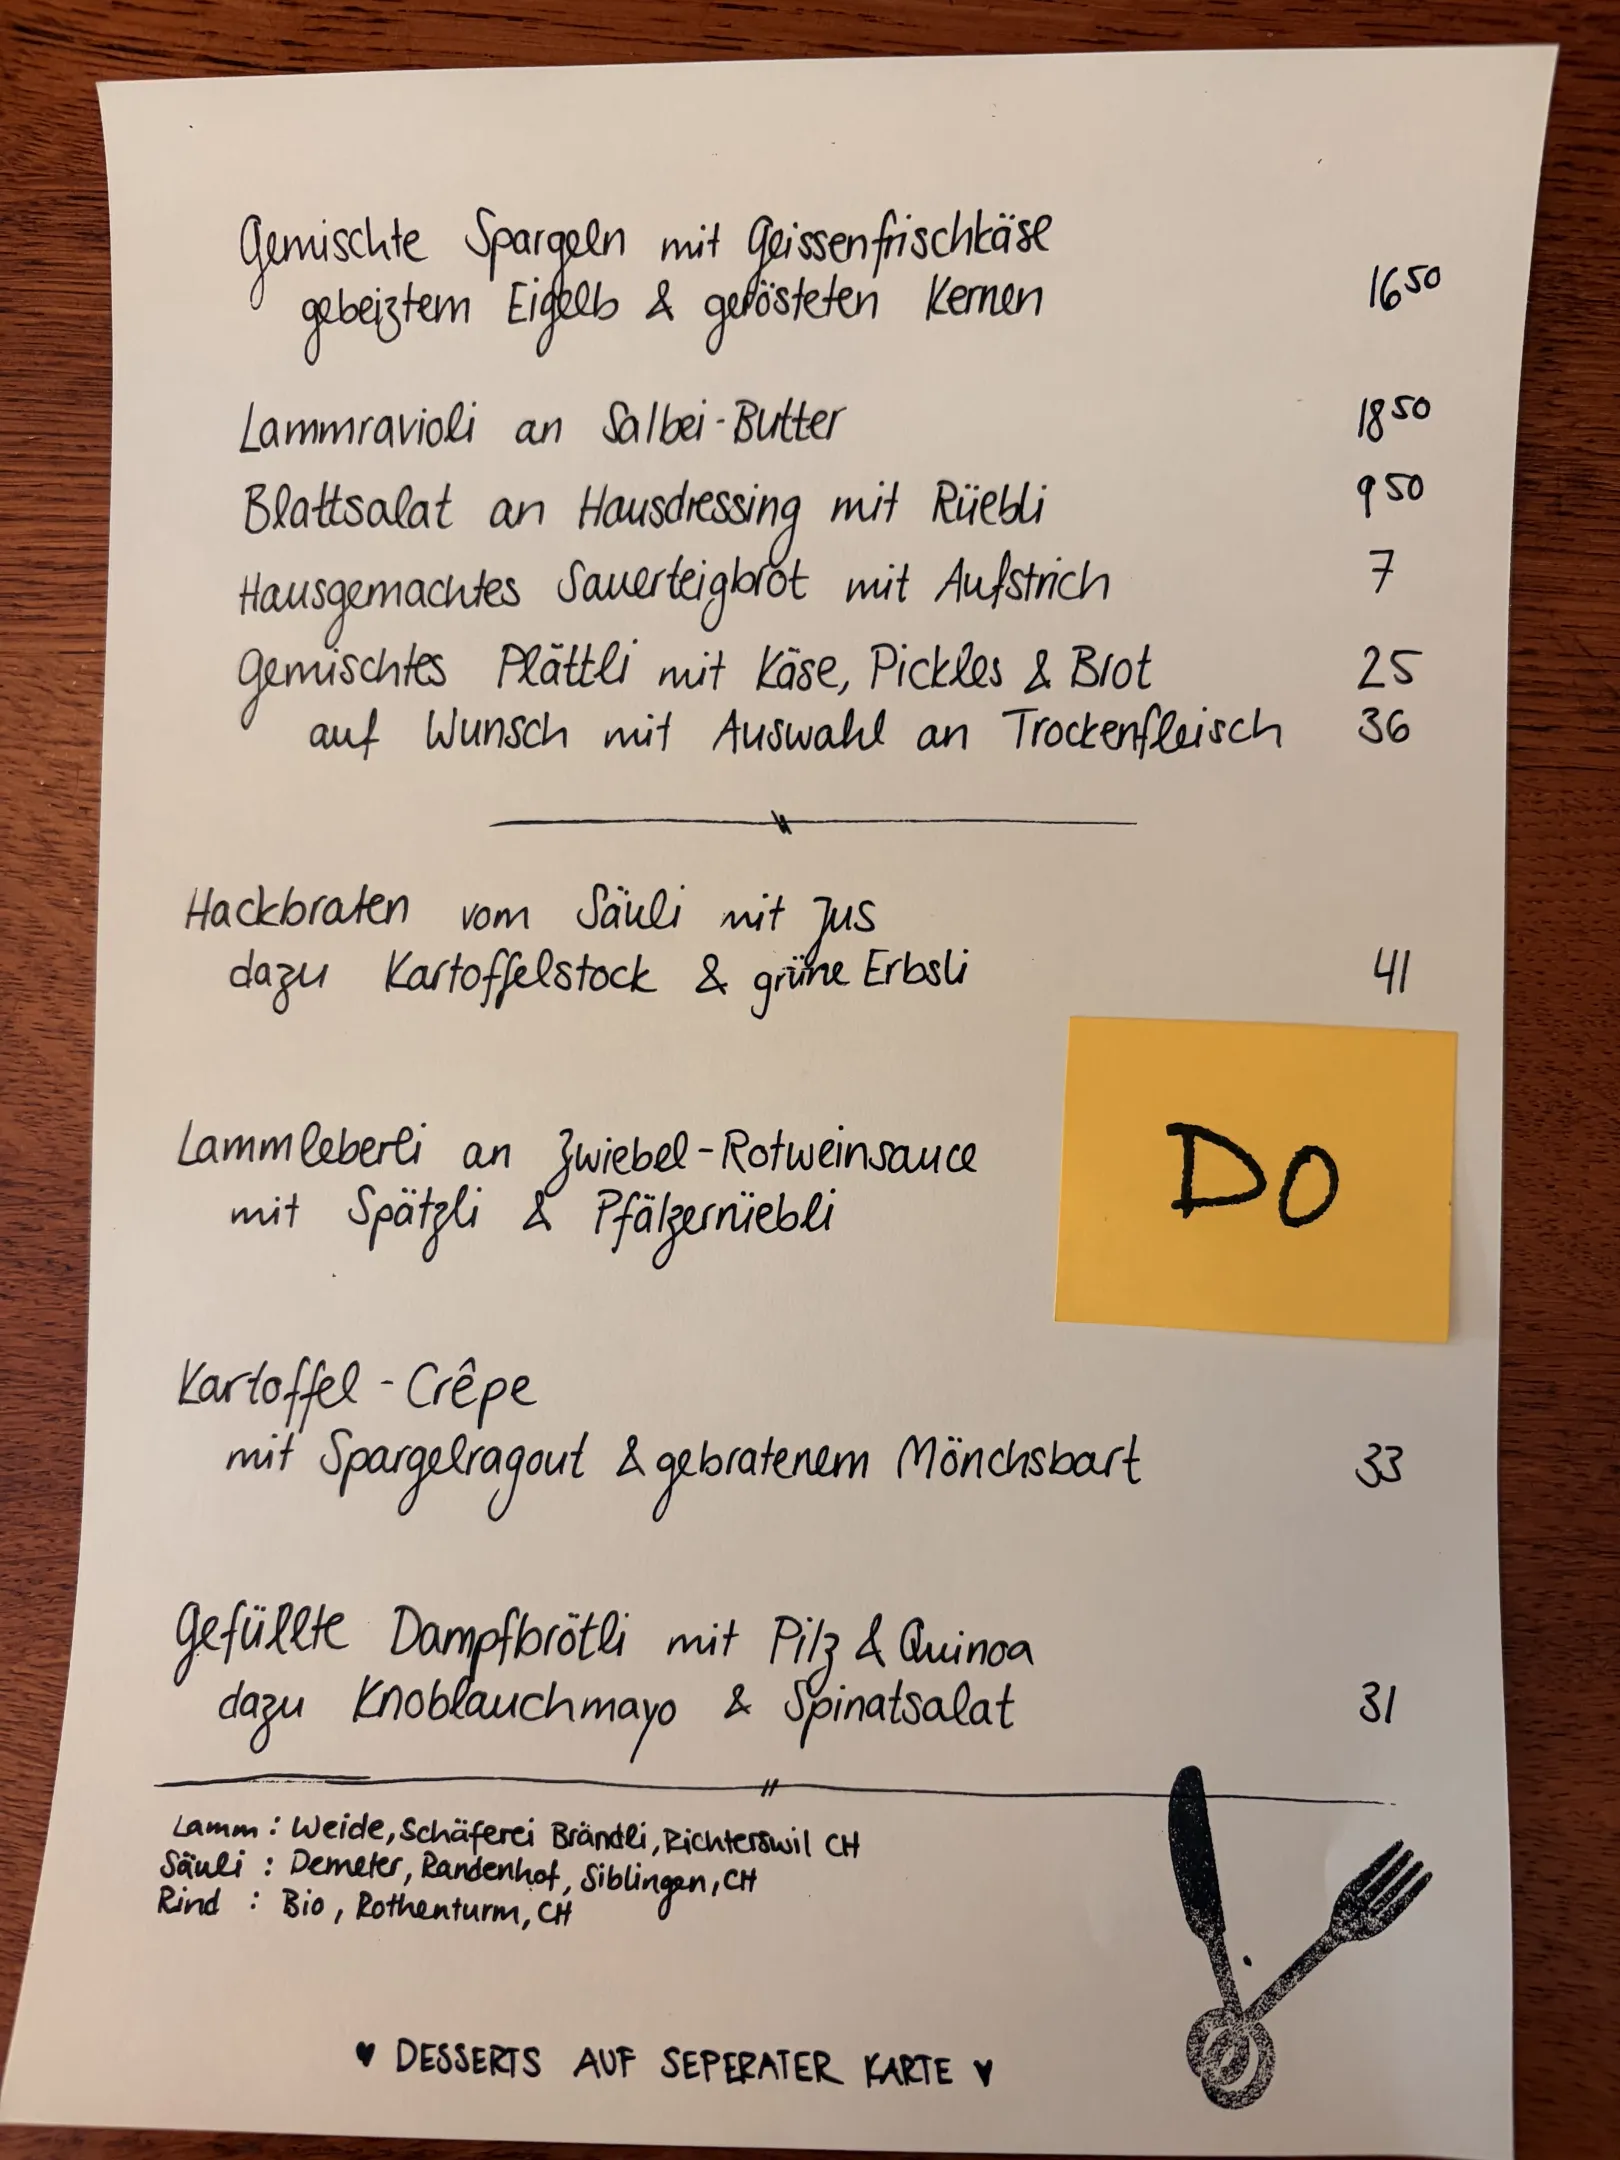 Gemischte Spargeln mit Geissenfrischkäse
gebeiztem Eigelb & gerösteten Kernen 16 50
Lammravioli an Salbei-Butter 18 50
Blattsalat an Hausdressing mit Rüebli 9 50
Hausgemachtes Sauerteigbrot mit Aufstrich 7
Gemischtes Plättli mit Käse, Pickles & Brot 25
auf Wunsch mit Auswahl an Trockenfleisch 36
Hackbraten vom Säuli mit Jus
dazu Kartoffelstock & grüne Erbsli 41
Lammleberli an Zwiebel-Rotweinsauce
mit Spätzli & Pfälzerrüebli
DO
Kartoffel-Crêpe
mit Spargelragout & gebratenem Mönchsbart 33
Gefüllte Dampfbrötli mit Pilz & Quinoa
dazu Knoblauchmayo & Spinatsalat 31
Lamm : Weide, Schäferei Brändli, Richterswil CH
Säuli : Demeter, Randenhof, Siblingen, CH
Rind : Bio, Rothenturm, CH
♥ DESSERTS AUF SEPERATER KARTE ♥